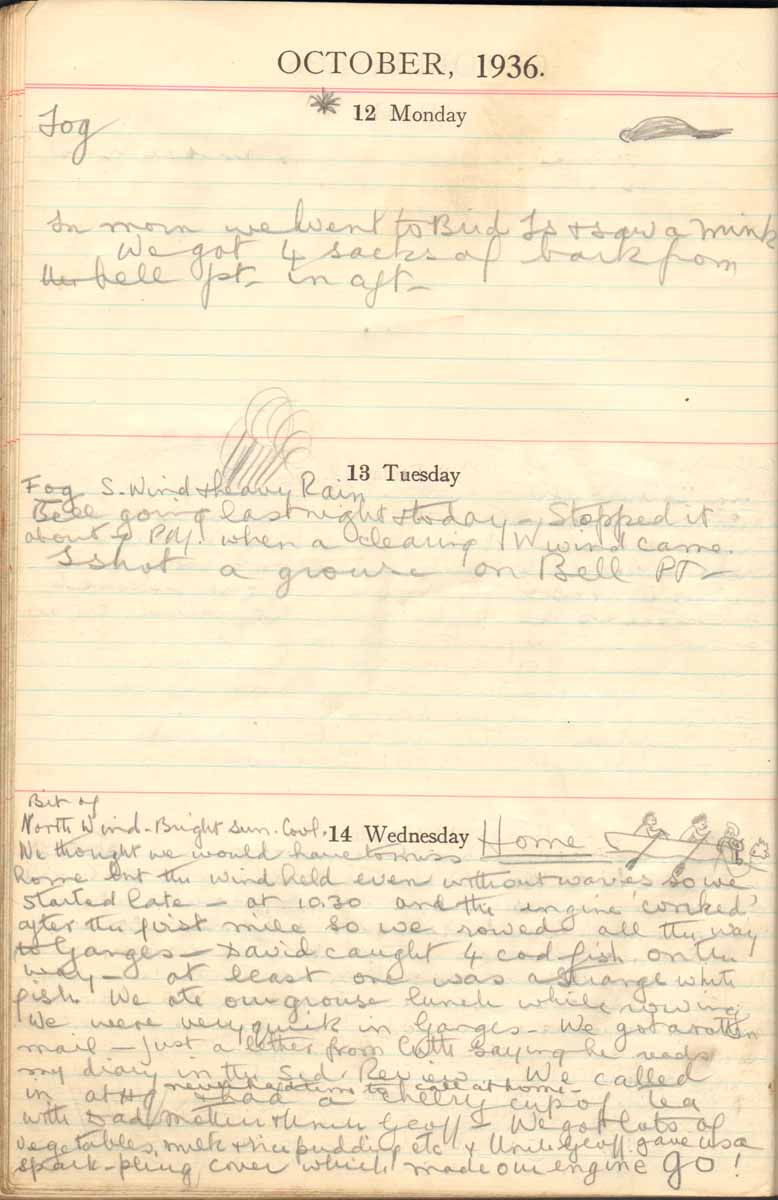 OCTOBER, 1936.
12 Monday
Fog
In morn we went to Bird Is & saw a mink
We got 4 sacks of bark from
bell pt - in aft -
13 Tuesday
Fog S. Wind & heavy Rain
Bell going last night & today - Stopped it
about P.M. when a clearing W wind came.
I shot a grouse on Bell PT -
Bit of
North Wind - Bright sun. Cool.
14 Wednesday Home
We thought we would have to miss
home but the wind held even without waves so we
started late - at 10.30 and the engine 'conked'
after the first mile so we rowed all the way
to Ganges - David caught 4 cod fish on the
way - at least one was a strange white
fish. We ate our grouse lunch while rowing
We were very quick in Ganges - We got a rotten
mail - Just a letter from saying he reads
my diary in the Sid. Review. We called
never had time to call at home -
in at & had a cheery cup of tea
with Dad Mother & Uncle Geoff - We got lots of
vegetables, milk & rice pudding etc & Uncle Geoff gave us a
spark-plug cover which made our engine go!